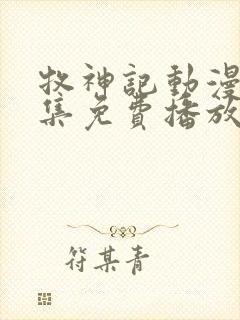 牧神記動漫
集免費播放
符某青